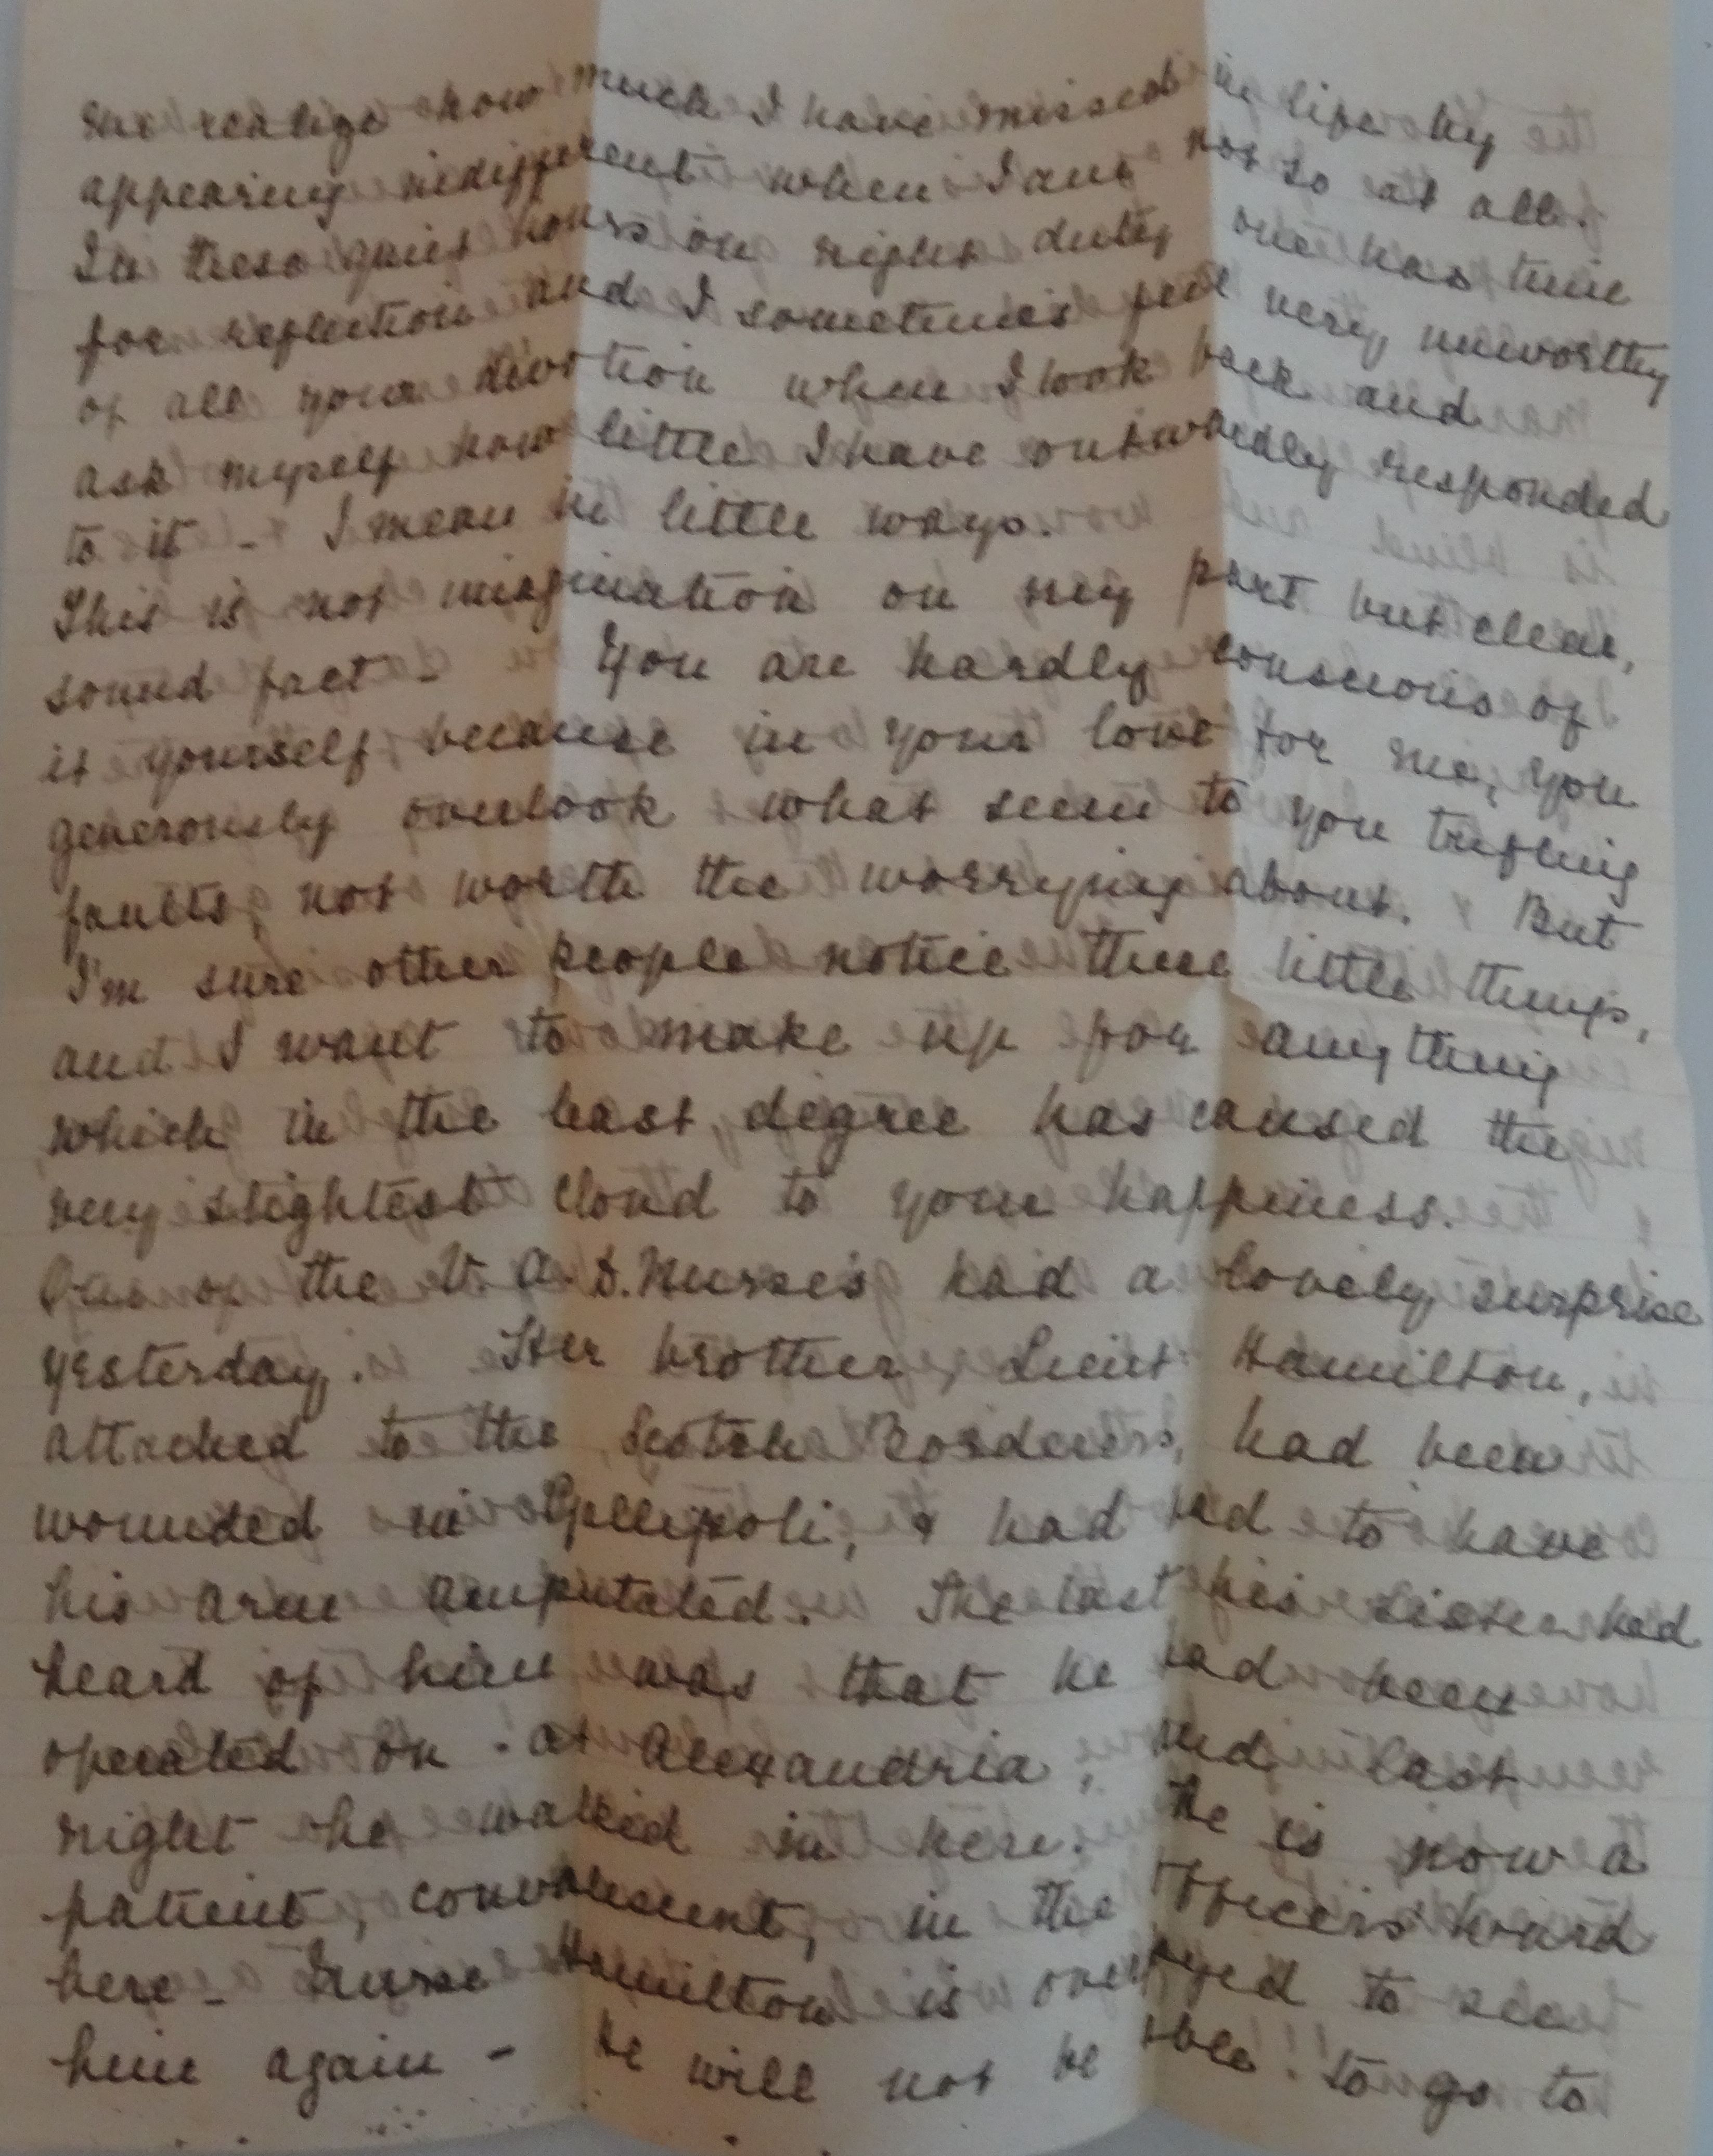 me realize how much I have missed in life by
appearing indifferent when I am not so at all.
In these quiet hours on night duty one has time
for reflection and I sometimes feel very unworthy
of all your devotion when I look back and
ask myself how little I have outwardly responded
to it - I mean in little ways.
This is not imagination on my part but clear,
sound fact - You are hardly conscious of
it yourself because in your love for me, you
generously overlook what seem to you trifling
faults, not worth the worrying about. But
I'm sure other people notice these little things,
and I want to make up for anything
which in the least degree has caused the
very slightest cloud to your happiness.
One of the V.A.D. Nurses had a lovely surprise
yesterday. Her brother, Lieut. Hamilton,
attached to the Scotch Borderers, had been
wounded in Gellipoli, & had had to have
his arm amputated. The last his sister had
heard of him was that he had been
operated on at Alexandria, and last
night he walked in here. He is now a
patient, convalescent, in the Officers' Ward
here - Nurse Hamilton is overjoyed to see
him again - he will not be able to go to